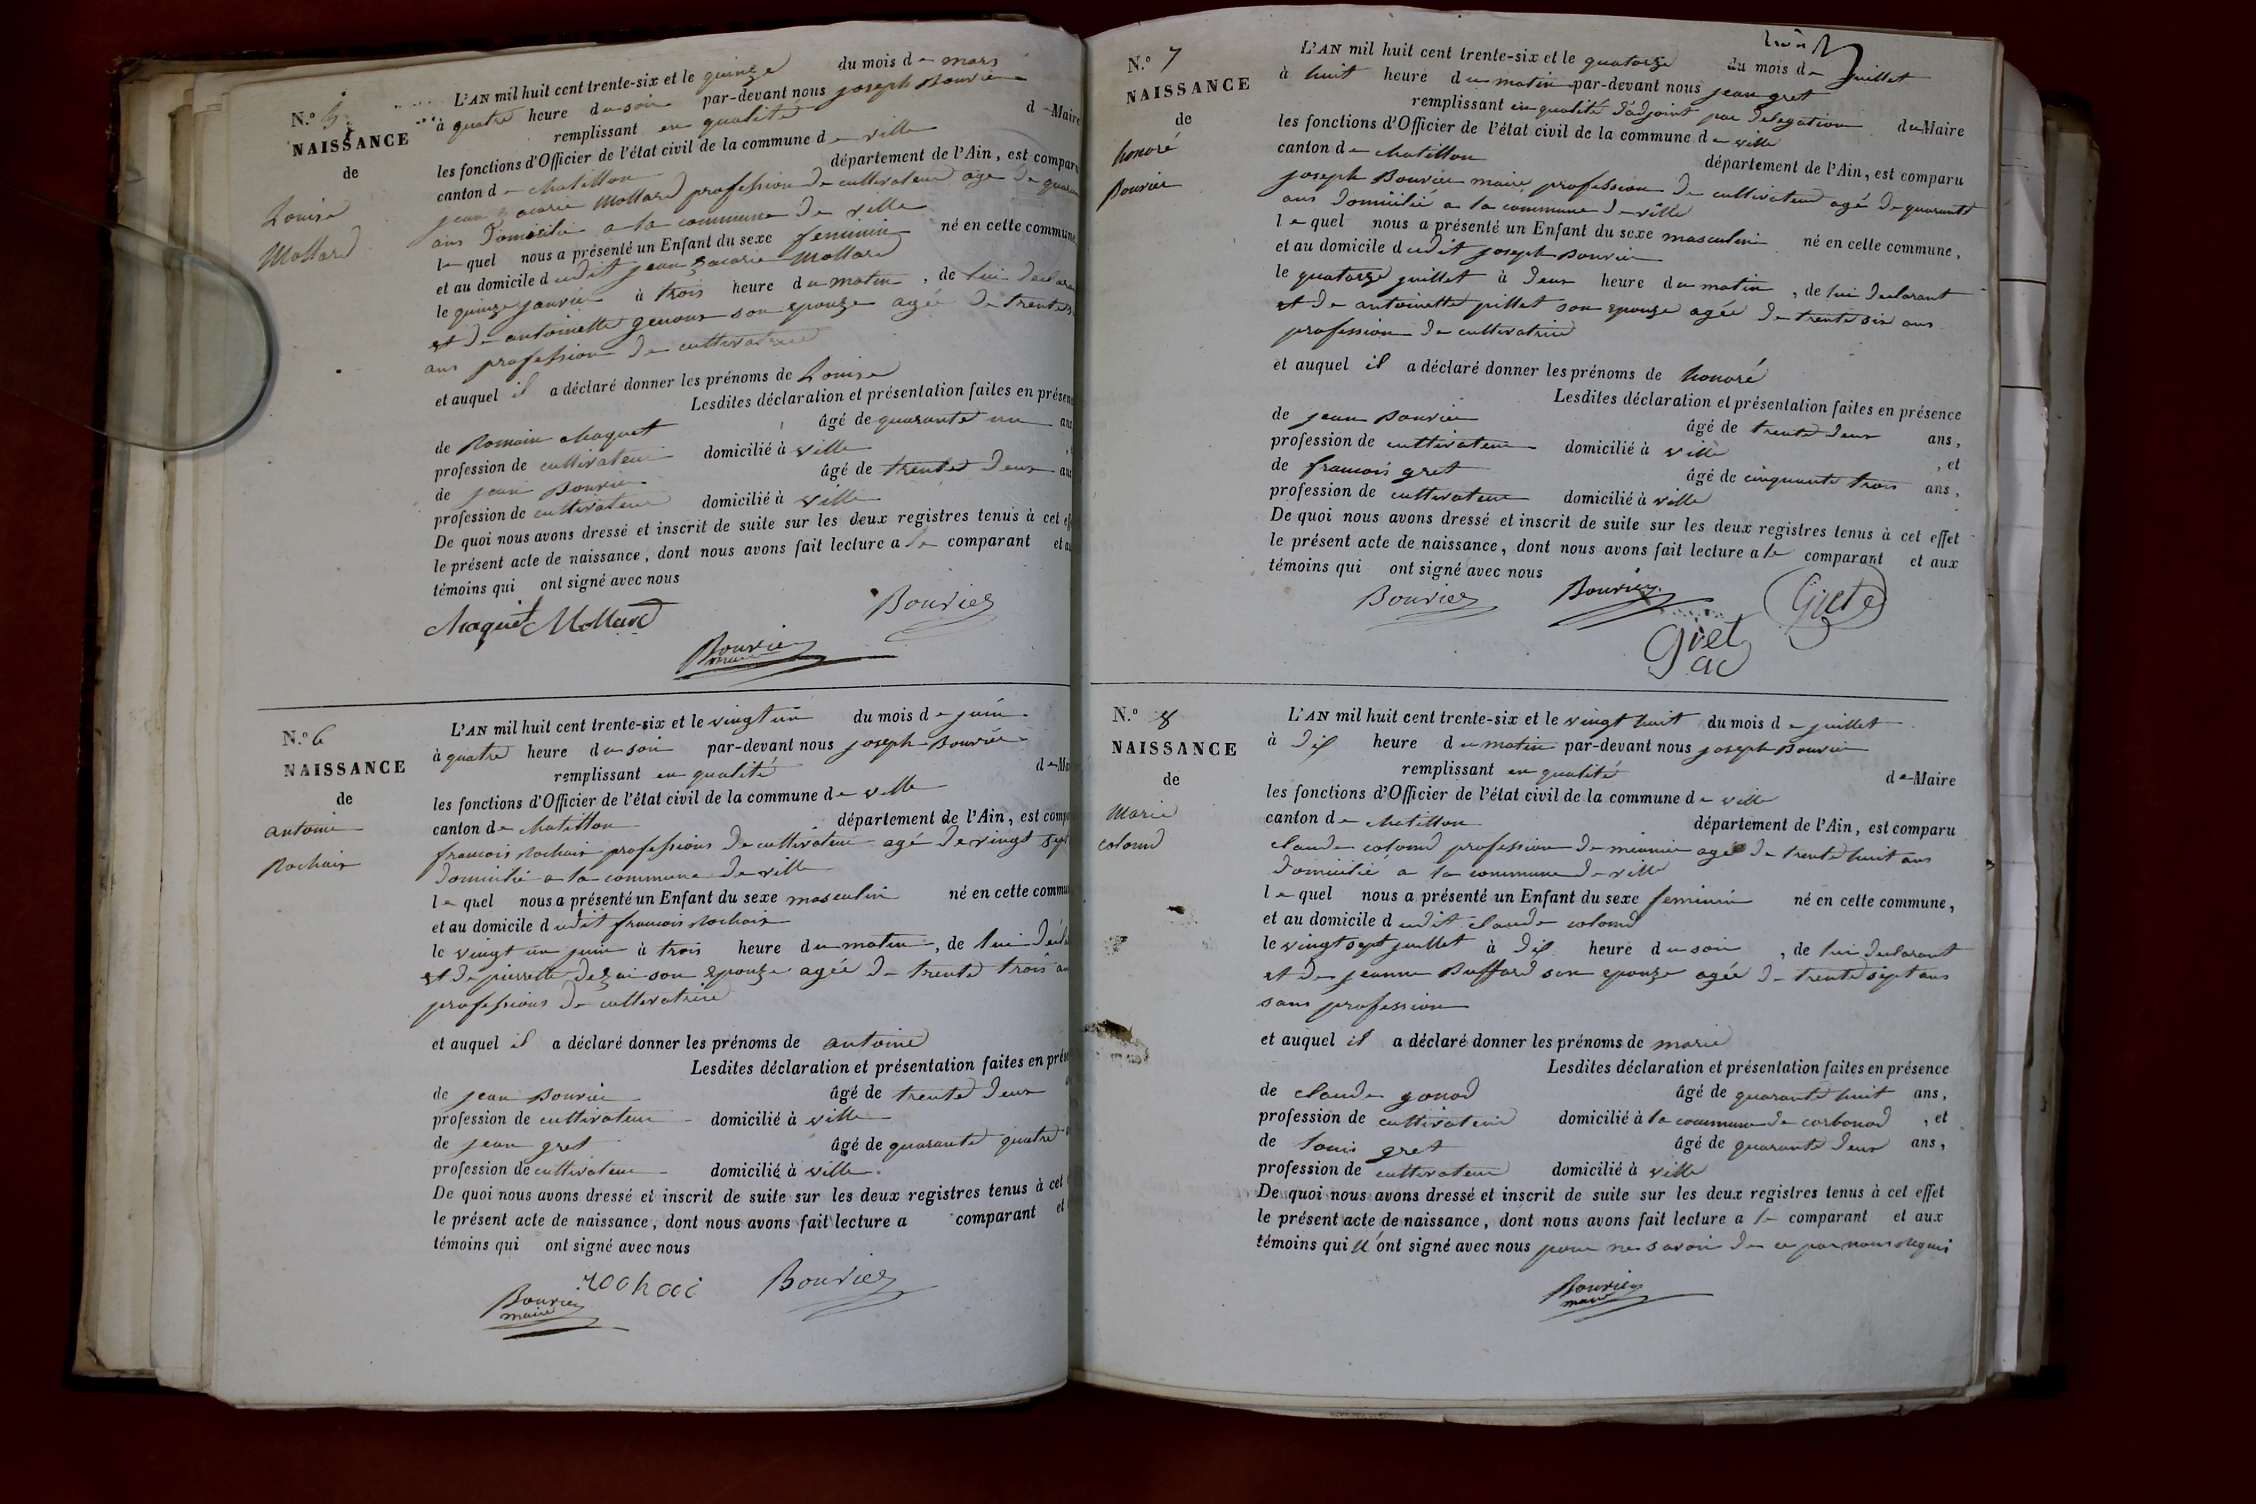 N.º 5
NAISSANCE
de
Louise
Mollard
L'AN mil huit cent trente-six et le quinze du mois de mars
à quatre heure du soir par-devant nous joseph Bouvier
remplissant en qualité de Maire
les fonctions d'Officier de l'état civil de la commune de ville
canton de chatillon département de l'Ain, est comparu
jean zacarie Mollard profession de cultivateur agé de
ans domicilié a la commune de ville
lequel nous a présenté un Enfant du sexe feminin né en cette commune
et au domicile dudit jean zacarie Mollard
le quinze à trois heure du matin, de lui
et de antoinette genoux son epouze agée de trente
ans profession de cultivatrice
et auquel il a déclaré donner les prénoms de Louise
Lesdites déclaration et présentation faites en présen
de Romain chaquet âgé de quarante un ans
profession de cultivateur domicilié à ville
de jean Bouvier âgé de trente deux ans
profession de cultivateur domicilié à ville
De quoi nous avons dressé et inscrit de suite sur les deux registres tenus à cet ef
le présent acte de naissance, dont nous avons fait lecture a le comparant et au
témoins qui ont signé avec nous
chaquet Mollard Bouvier
Bouvier
maire
N.º 6
NAISSANCE
de
antoine
Rochaix
L'AN mil huit cent trente-six et le vingt un du mois de juin
à quatre heure du soir par-devant nous joseph Bouvier
remplissant en qualité de Ma
les fonctions d'Officier de l'état civil de la commune de ville
canton de chatillon département de l'Ain, est compa
francois Rochaix professions de cultivateur agé de vingt sept
domicilié a la commune de ville
lequel nous a présenté un Enfant du sexe masculin né en cette commu
et au domicile dudit francois Rochaix
le vingt un juin à trois heure du matin, de lui
et de pierrette son epouze agée de trente trois an
professions de cultivatrice
et auquel il a déclaré donner les prénoms de antoine
Lesdites déclaration et présentation faites en prése
de jean Bouvier âgé de trente deux
profession de cultivateur domicilié à ville
de jean gret âgé de quarante quatre
profession de cultivateur domicilié à ville
De quoi nous avons dressé et inscrit de suite sur les deux registres tenus à cet
le présent acte de naissance, dont nous avons fait lecture a comparant et
témoins qui ont signé avec nous
Bouvier
maire
rochai Bouvier
N.º 7
NAISSANCE
de
honoré
Bouvier
L'AN mil huit cent trente-six et le quatorze du mois de juillet
à huit heure du matin par-devant nous jean gret
remplissant en qualité d'adjoint par delegation du Maire
les fonctions d'Officier de l'état civil de la commune de ville
canton de chatillon département de l'Ain, est comparu
joseph Bouvier maire profession de cultivateur agé de quarante
ans domicilié a la commune de ville
lequel nous a présenté un Enfant du sexe masculin né en cette commune,
et au domicile dudit joseph Bouvier
le quatorze juillet à deux heure du matin, de lui declarant
et de antoinette pillet son epouze agée de trente six ans
profession de cultivatrice
et auquel il a déclaré donner les prénoms de honoré
Lesdites déclaration et présentation faites en présence
de jean Bouvier âgé de trente deux ans,
profession de cultivateur domicilié à ville, et
de francois gret âgé de cinquante trois ans,
profession de cultivateur domicilié à ville
De quoi nous avons dressé et inscrit de suite sur les deux registres tenus à cet effet
le présent acte de naissance, dont nous avons fait lecture a le comparant et aux
témoins qui ont signé avec nous
Bouvier Bouvier Grete
Gret
ad
N.º 8
NAISSANCE
de
Marie
colomd
L'AN mil huit cent trente-six et le vingt huit du mois de juillet
à dix heure du matin par-devant nous joseph Bouvier
remplissant en qualité de Maire
les fonctions d'Officier de l'état civil de la commune de ville
canton de chatillon département de l'Ain, est comparu
claude colomd profession de meunier agé de trente huit ans
domicilié a la commune de ville
lequel nous a présenté un Enfant du sexe feminin né en cette commune,
et au domicile dudit claude colomd
le vingt sept juillet à dix heure du soir, de lui declarant
et de jeanne Buffard son epouze agée de trente sept ans
sans profession
et auquel il a déclaré donner les prénoms de marie
Lesdites déclaration et présentation faites en présence
de claude gonod âgé de quarante huit ans,
profession de cultivateur domicilié à la commune de corbonod, et
de louis gret âgé de quarante deux ans,
profession de cultivateur domicilié à ville
De quoi nous avons dressé et inscrit de suite sur les deux registres tenus à cet effet
le présent acte de naissance, dont nous avons fait lecture a le comparant et aux
témoins qui n'ont signé avec nous pour ne savoir de ce par nous requis
Bouvier
maire